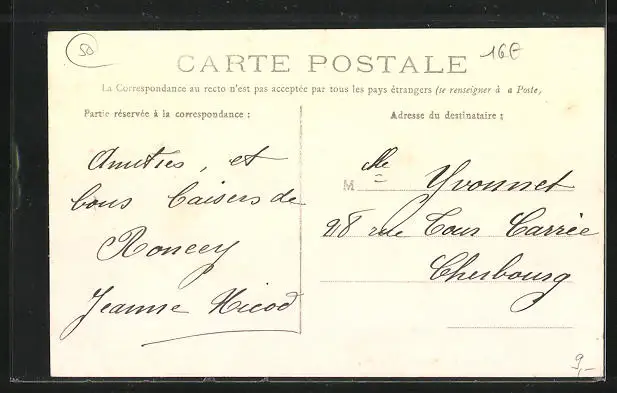 50
16€
CARTE POSTALE
La Correspondance au recto n'est pas acceptée par tous les pays étrangers (se renseigner à a Poste)
Partie réservée à la correspondance :
Adresse du destinataire :
Amitiés, et
bons baisers de
Roncey
Jeanne Nicod
Mlle Yvonnet
98 rue Tour Carrée
Cherbourg
9,-